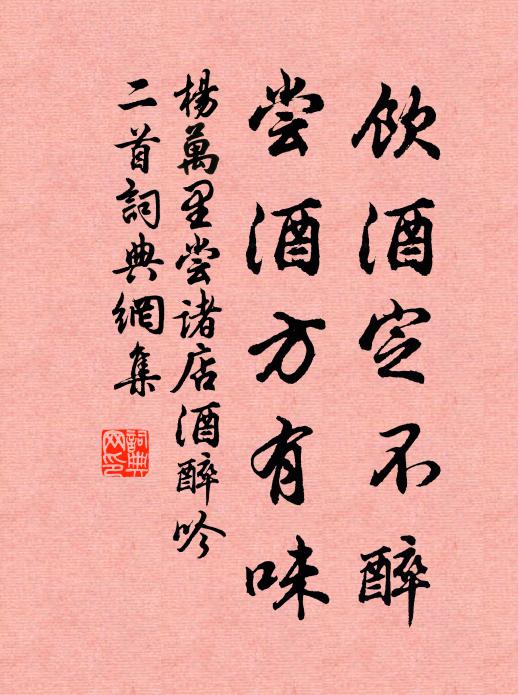 飲酒定不醉
尝酒方有味
楊萬里尝諸店酒醉吟
二首詞典網集
詞典
网印